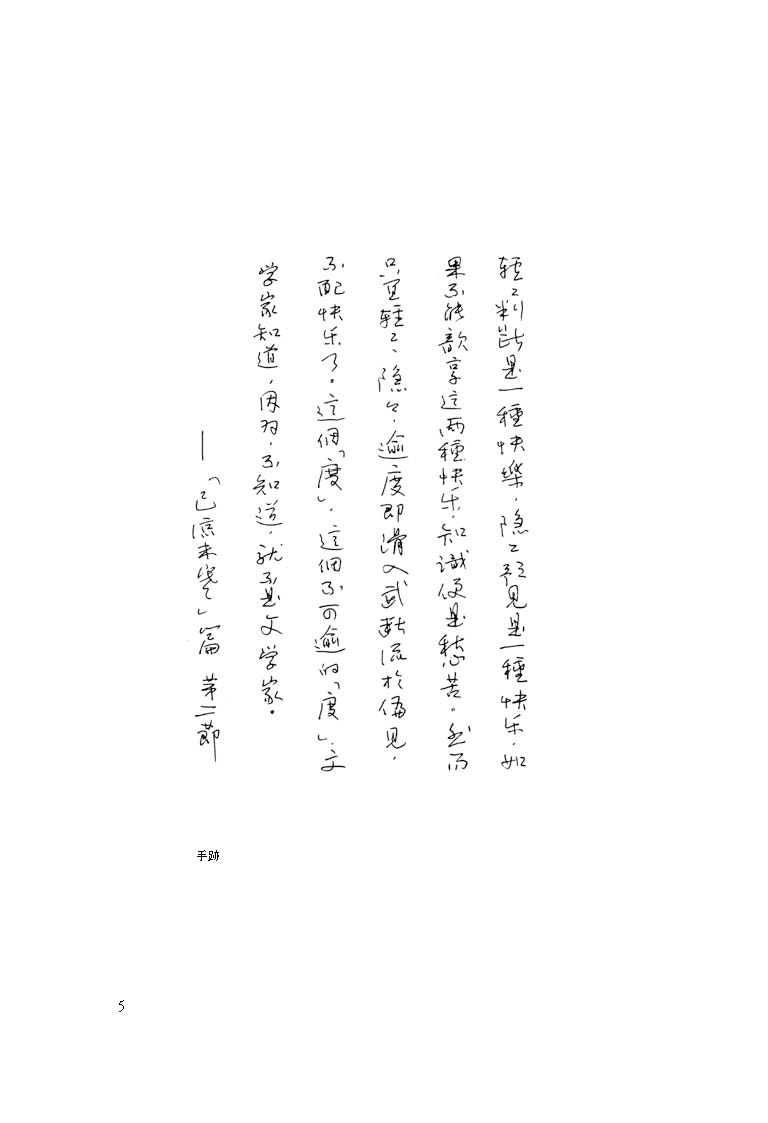 轻〻判断是一種快樂，隐〻预见是一種快乐，如
果不能歆享这两種快乐，知識便是愁苦。然而
只宜轻〻、隐々，逾度即滑入武断流於偏见，
不配快乐了。这個「度」，这個不可逾的「度」，文
学家知道，因为，不知道，就不是文学家。
—「已凉未寒」篇 第二節
手跡
5